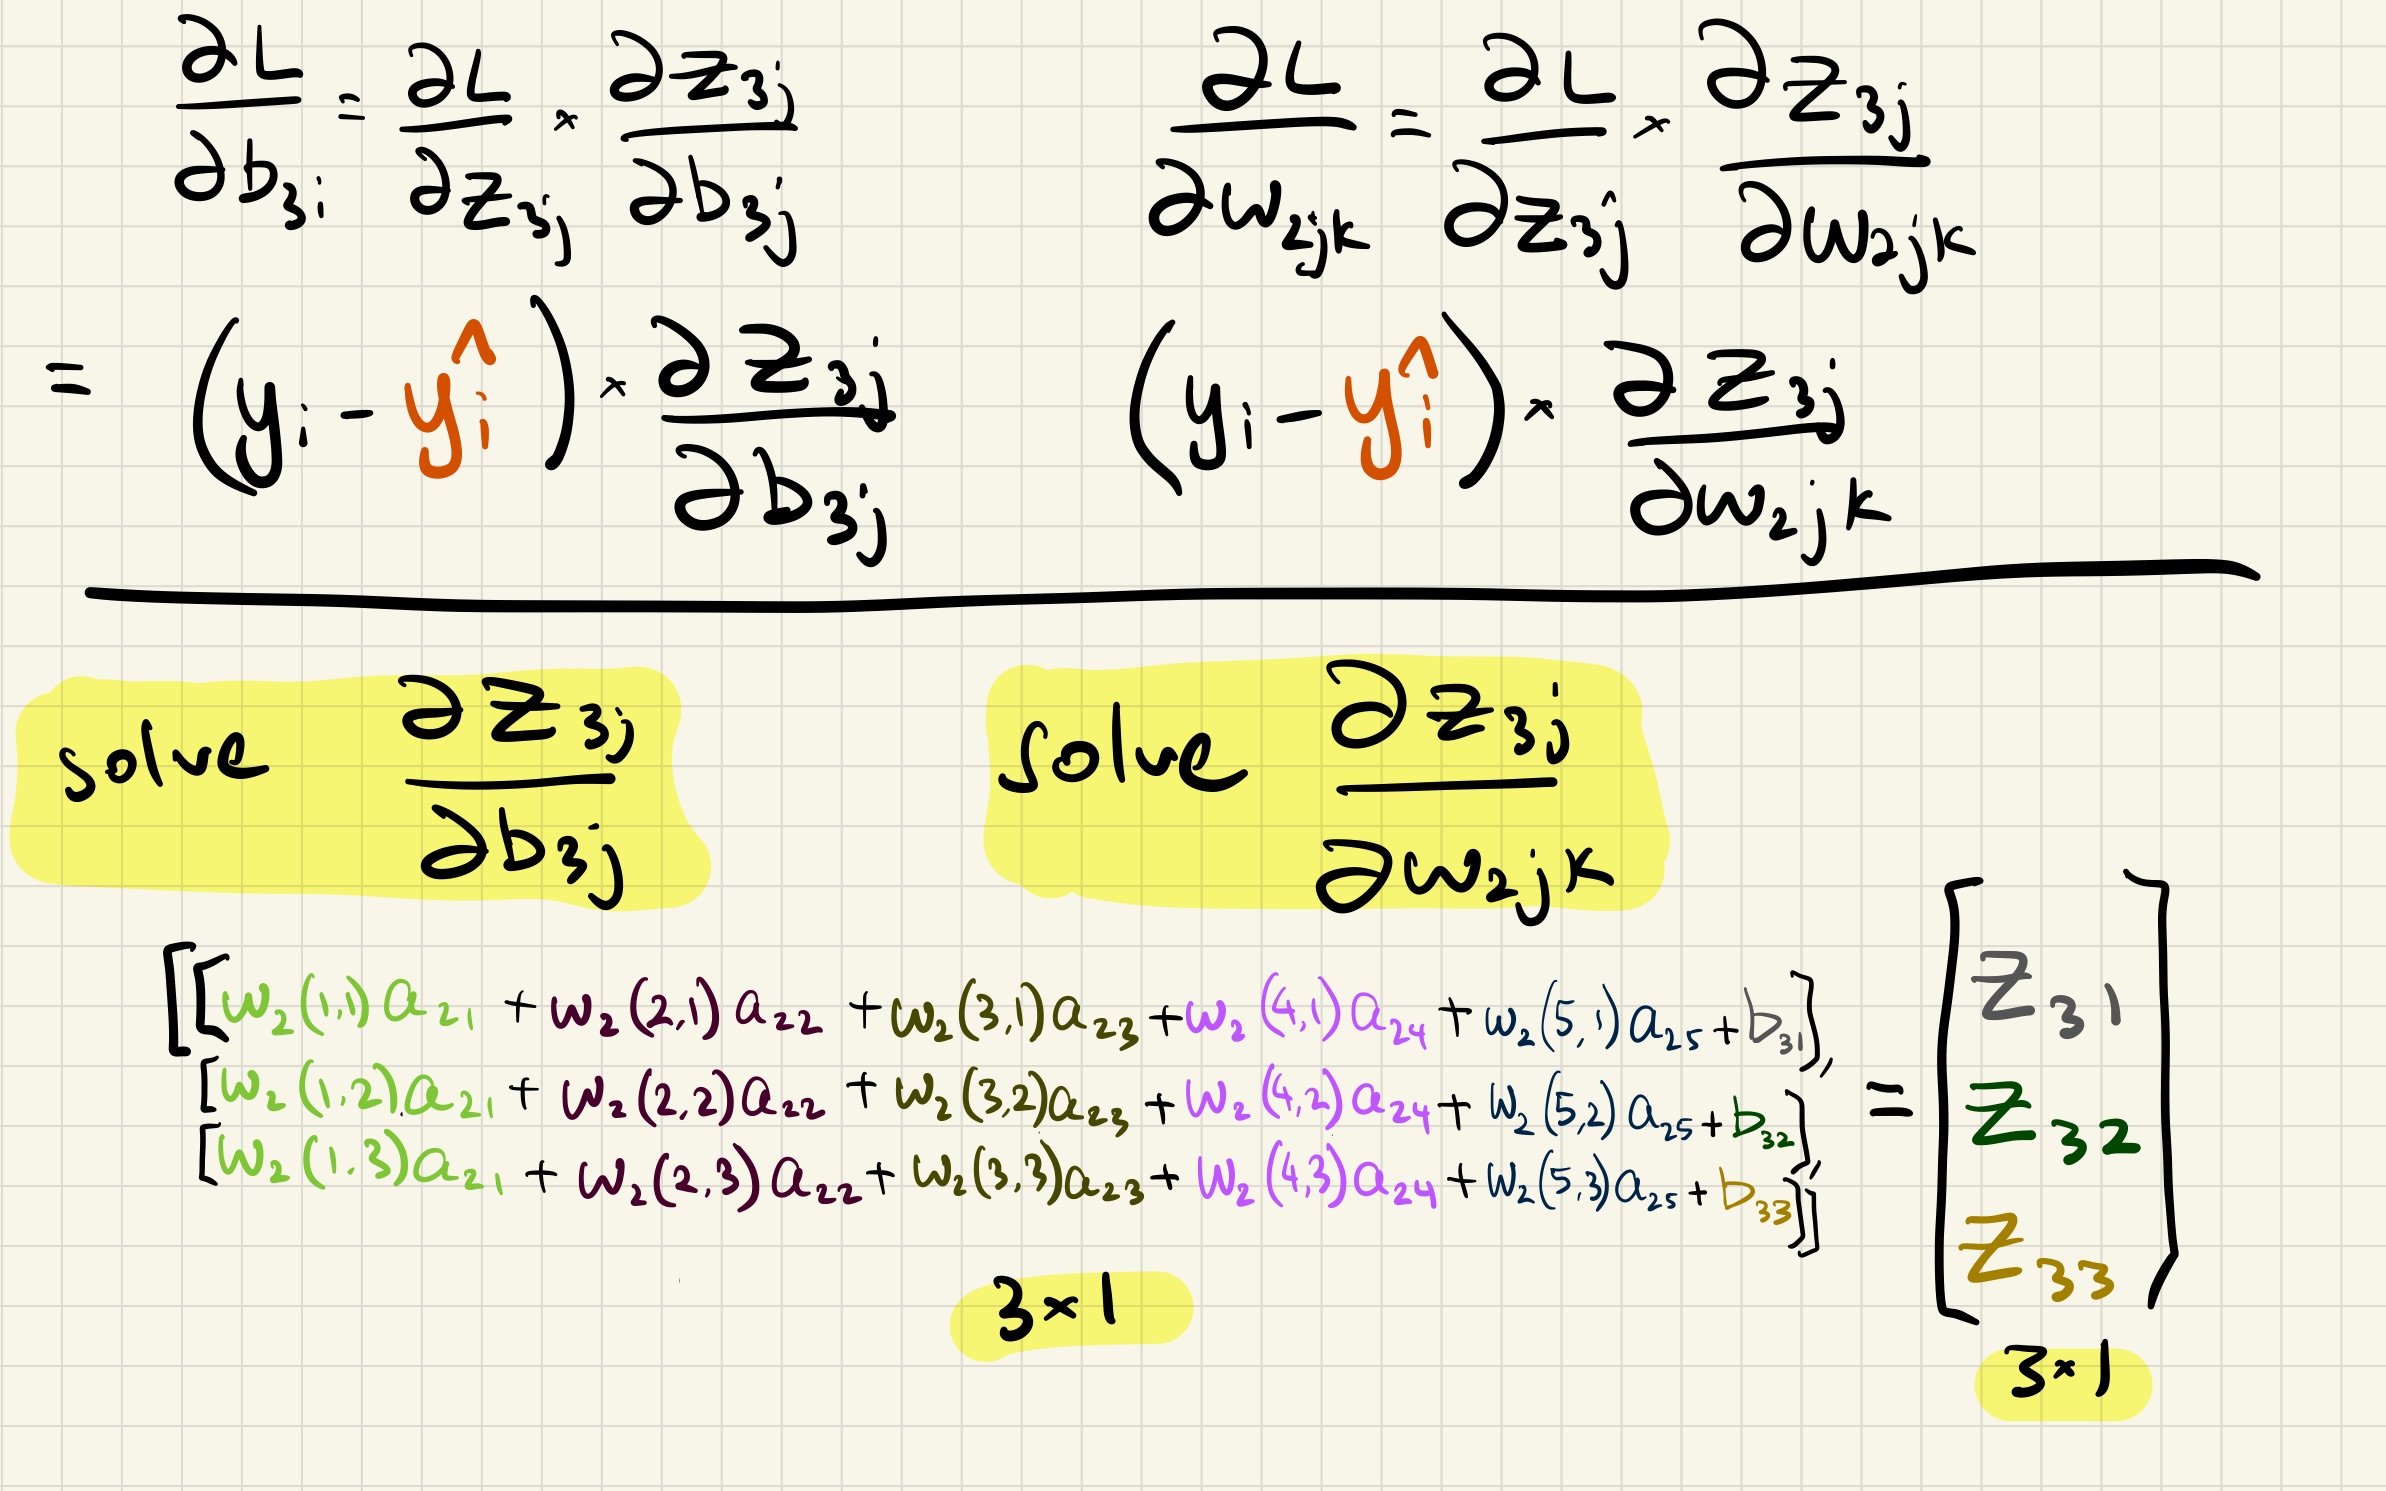 ∂L/∂b₃ᵢ = ∂L/∂z₃ⱼ × ∂z₃ⱼ/∂b₃ⱼ    ∂L/∂w₂ⱼₖ = ∂L/∂z₃ⱼ × ∂z₃ⱼ/∂w₂ⱼₖ
= (yᵢ - ŷᵢ) × ∂z₃ⱼ/∂b₃ⱼ    (yᵢ - ŷᵢ) × ∂z₃ⱼ/∂w₂ⱼₖ
solve ∂z₃ⱼ/∂b₃ⱼ    solve ∂z₃ⱼ/∂w₂ⱼₖ
[[w₂(1,1)a₂₁ + w₂(2,1)a₂₂ + w₂(3,1)a₂₃ + w₂(4,1)a₂₄ + w₂(5,1)a₂₅ + b₃₁], = [z₃₁
[w₂(1,2)a₂₁ + w₂(2,2)a₂₂ + w₂(3,2)a₂₃ + w₂(4,2)a₂₄ + w₂(5,2)a₂₅ + b₃₂], z₃₂
[w₂(1.3)a₂₁ + w₂(2,3)a₂₂ + w₂(3,3)a₂₃ + w₂(4,3)a₂₄ + w₂(5,3)a₂₅ + b₃₃]] z₃₃]
3×1
3×1